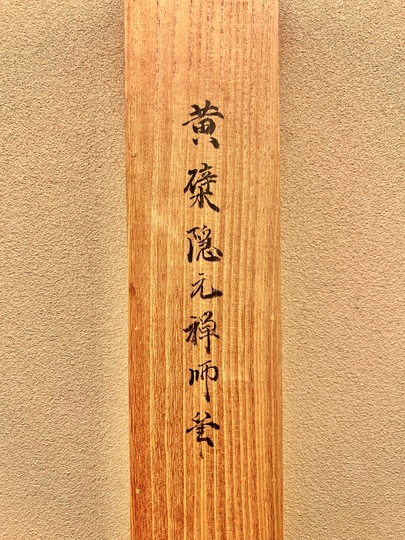 黄檗隠元禅師